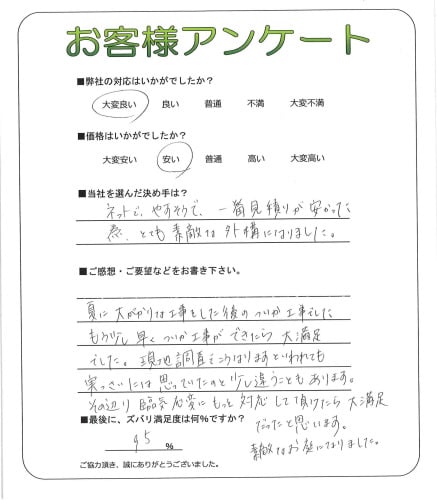 お客様アンケート
■弊社の対応はいかがでしたか?
大変良い 良い 普通 不満 大変不満
■価格はいかがでしたか?
大変安い 安い 普通 高い 大変高い
■当社を選んだ決め手は?
ネットで、やすそうで、一番見積りが安かった
為、とても素敵な外構になりました。
■ご感想・ご要望などをお書き下さい。
夏に大がかりな工事をした後のついか工事でした
もう少し早くついか工事ができたら大満足
でした。現地調査でこうなりますといわれても
実っさいには思っていたのと少し違うこともあります。
その辺り臨機応変にもっと対応して頂けたら大満足
だったと思います。
■最後に、ズバリ満足度は何%ですか?
素敵なお庭になりました。
95 %
ご協力頂き、誠にありがとうございました。